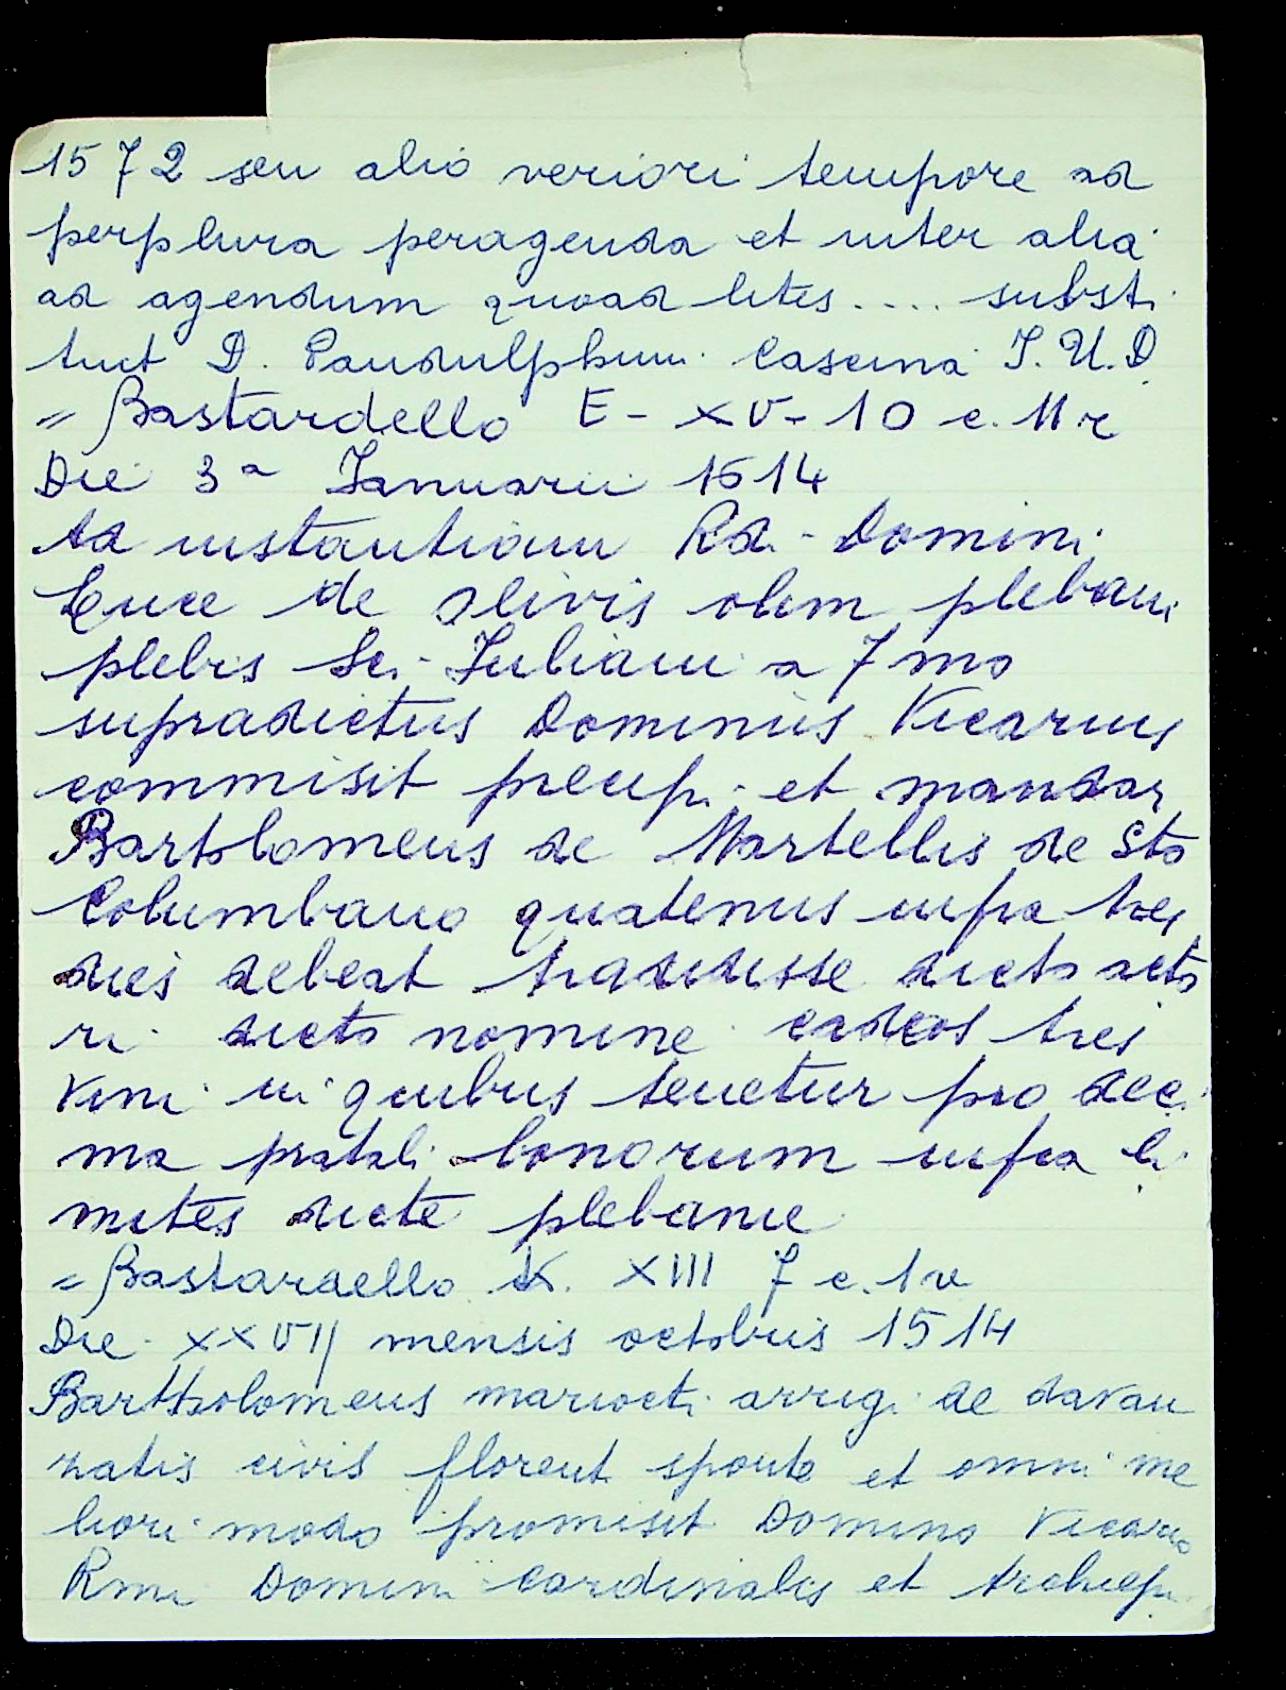 1572 seu alio veriori tempore ad
perplura peragenda et inter alia
ad agendum quoad lites .... substi
tuit D. Pandulphum Cascina J.U.D
= Bastardello E - XV - 10 c. 11 r
Die 3a Ianuarii 1514
Ad instantiam Rdi - Domini
Luce de Olivis olim plebani
plebis Sci - Iuliani a 7mo
supradictus Dominus Vicarius
commisit precip. et mandar
Bartolomeus de Martellis de Sto
Columbano quatenus infra tres
dies debeat tradidisse dicto acto
ri dicto nomine cados tres
vini in quibus tenetur pro deci
ma pratali bonorum infra li
mites dicte plebanie
= Bastardello K. XIII 7 c. 1 v
Die XXVIJ mensis octobris 1514
Bartholomeus mariocti arrigi de davan
zatis civis florent sponte et omni me
liori modo promisit Domino Vicario
Rmi Domini Cardinalis et Archiepi